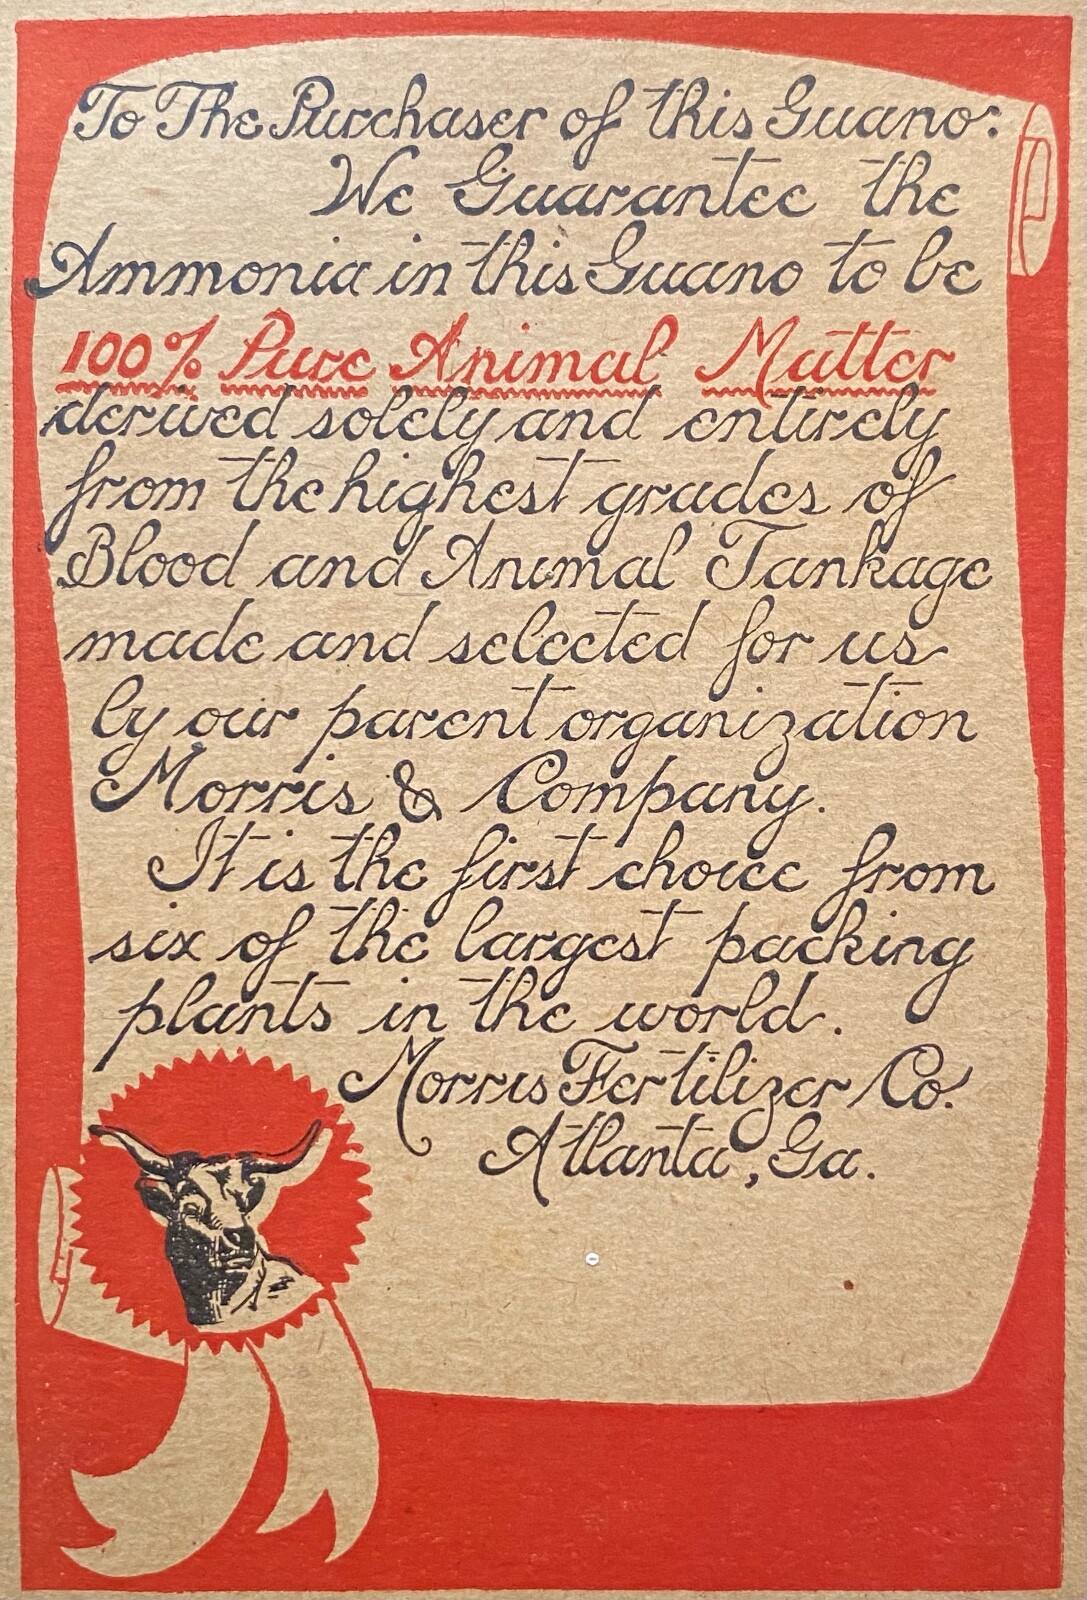 To The Purchaser of this Guano:
We Guarantee the
Ammonia in this Guano to be
100% Pure Animal Matter
derived solely and entirely
from the highest grades of
Blood and Animal Tankage
made and selected for us
by our parent organization
Morris & Company.
It is the first choice from
six of the largest packing
plants in the world.
Morris Fertilizer Co.
Atlanta, Ga.